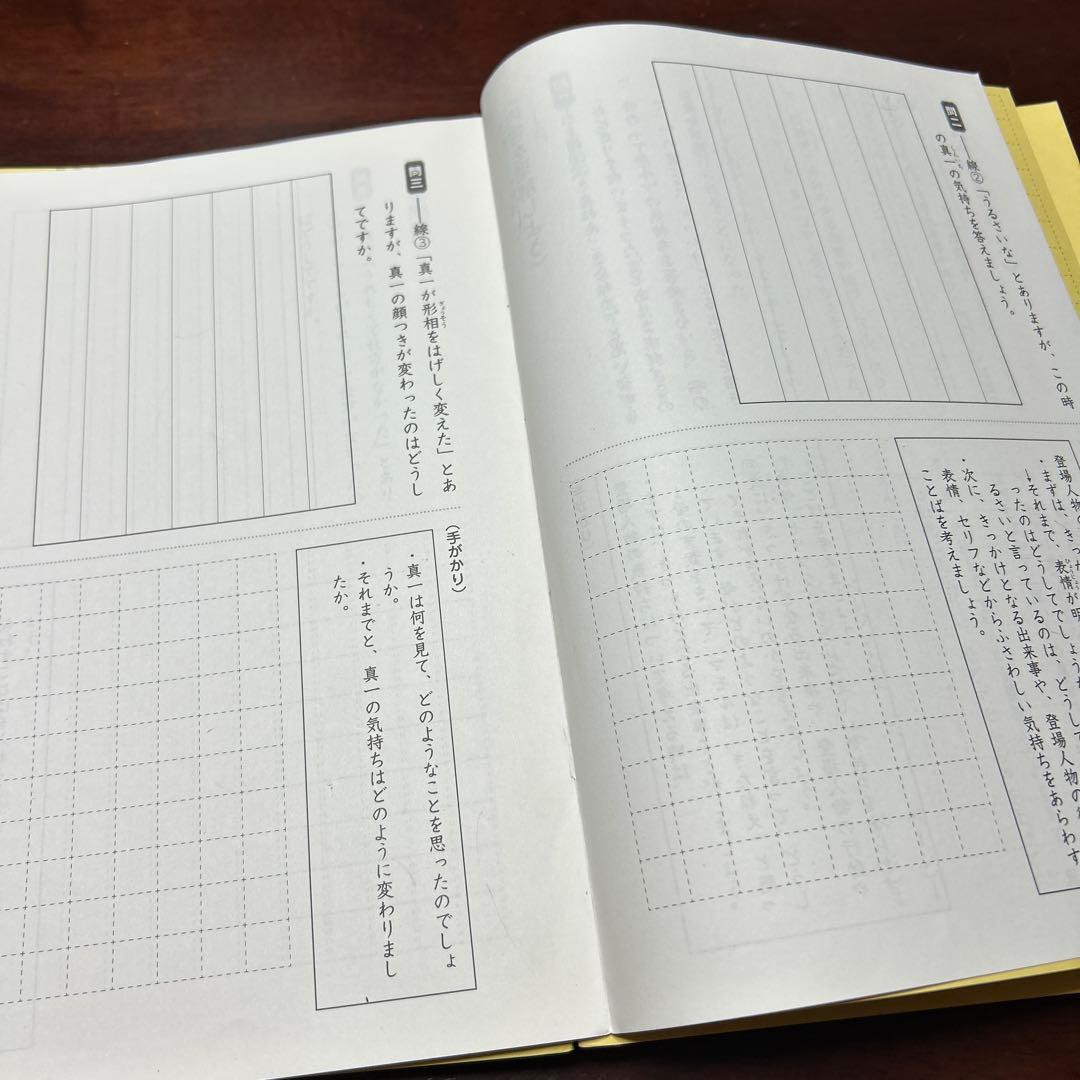 問二 ――線②「うるさいな」とありますが、この時
の真一の気持ちを答えましょう。
登場人物の
・まずは、きっか
→それまで、表情が明
ったのはどうしてでしょうか
るさいと言っているのは、どうして
・次に、きっかけとなる出来事や、登場人物の
表情、セリフなどからふさわしい気持ちをあらわす
ことばを考えましょう。
問三 ――線③「真一が形相をはげしく変えた」とあ
ぎょうそう
りますが、真一の顔つきが変わったのはどうし
てですか。
(手がかり)
・真一は何を見て、どのようなことを思ったのでしょ
うか。
・それまでと、真一の気持ちはどのように変わりまし
たか。